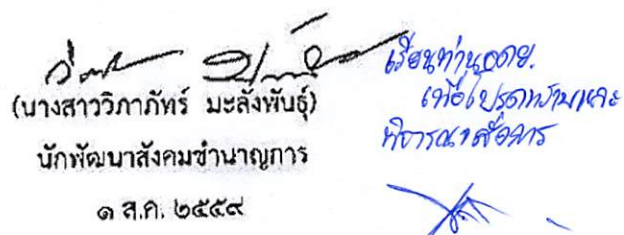 (นางสาววิภาภัทร์ มะลังพันธุ์)
นักพัฒนาสังคมชำนาญการ
๑ ส.ค. ๒๕๕๙
เรียนท่าน อดย.
เพื่อโปรดทราบและ
พิจารณาสั่งการ